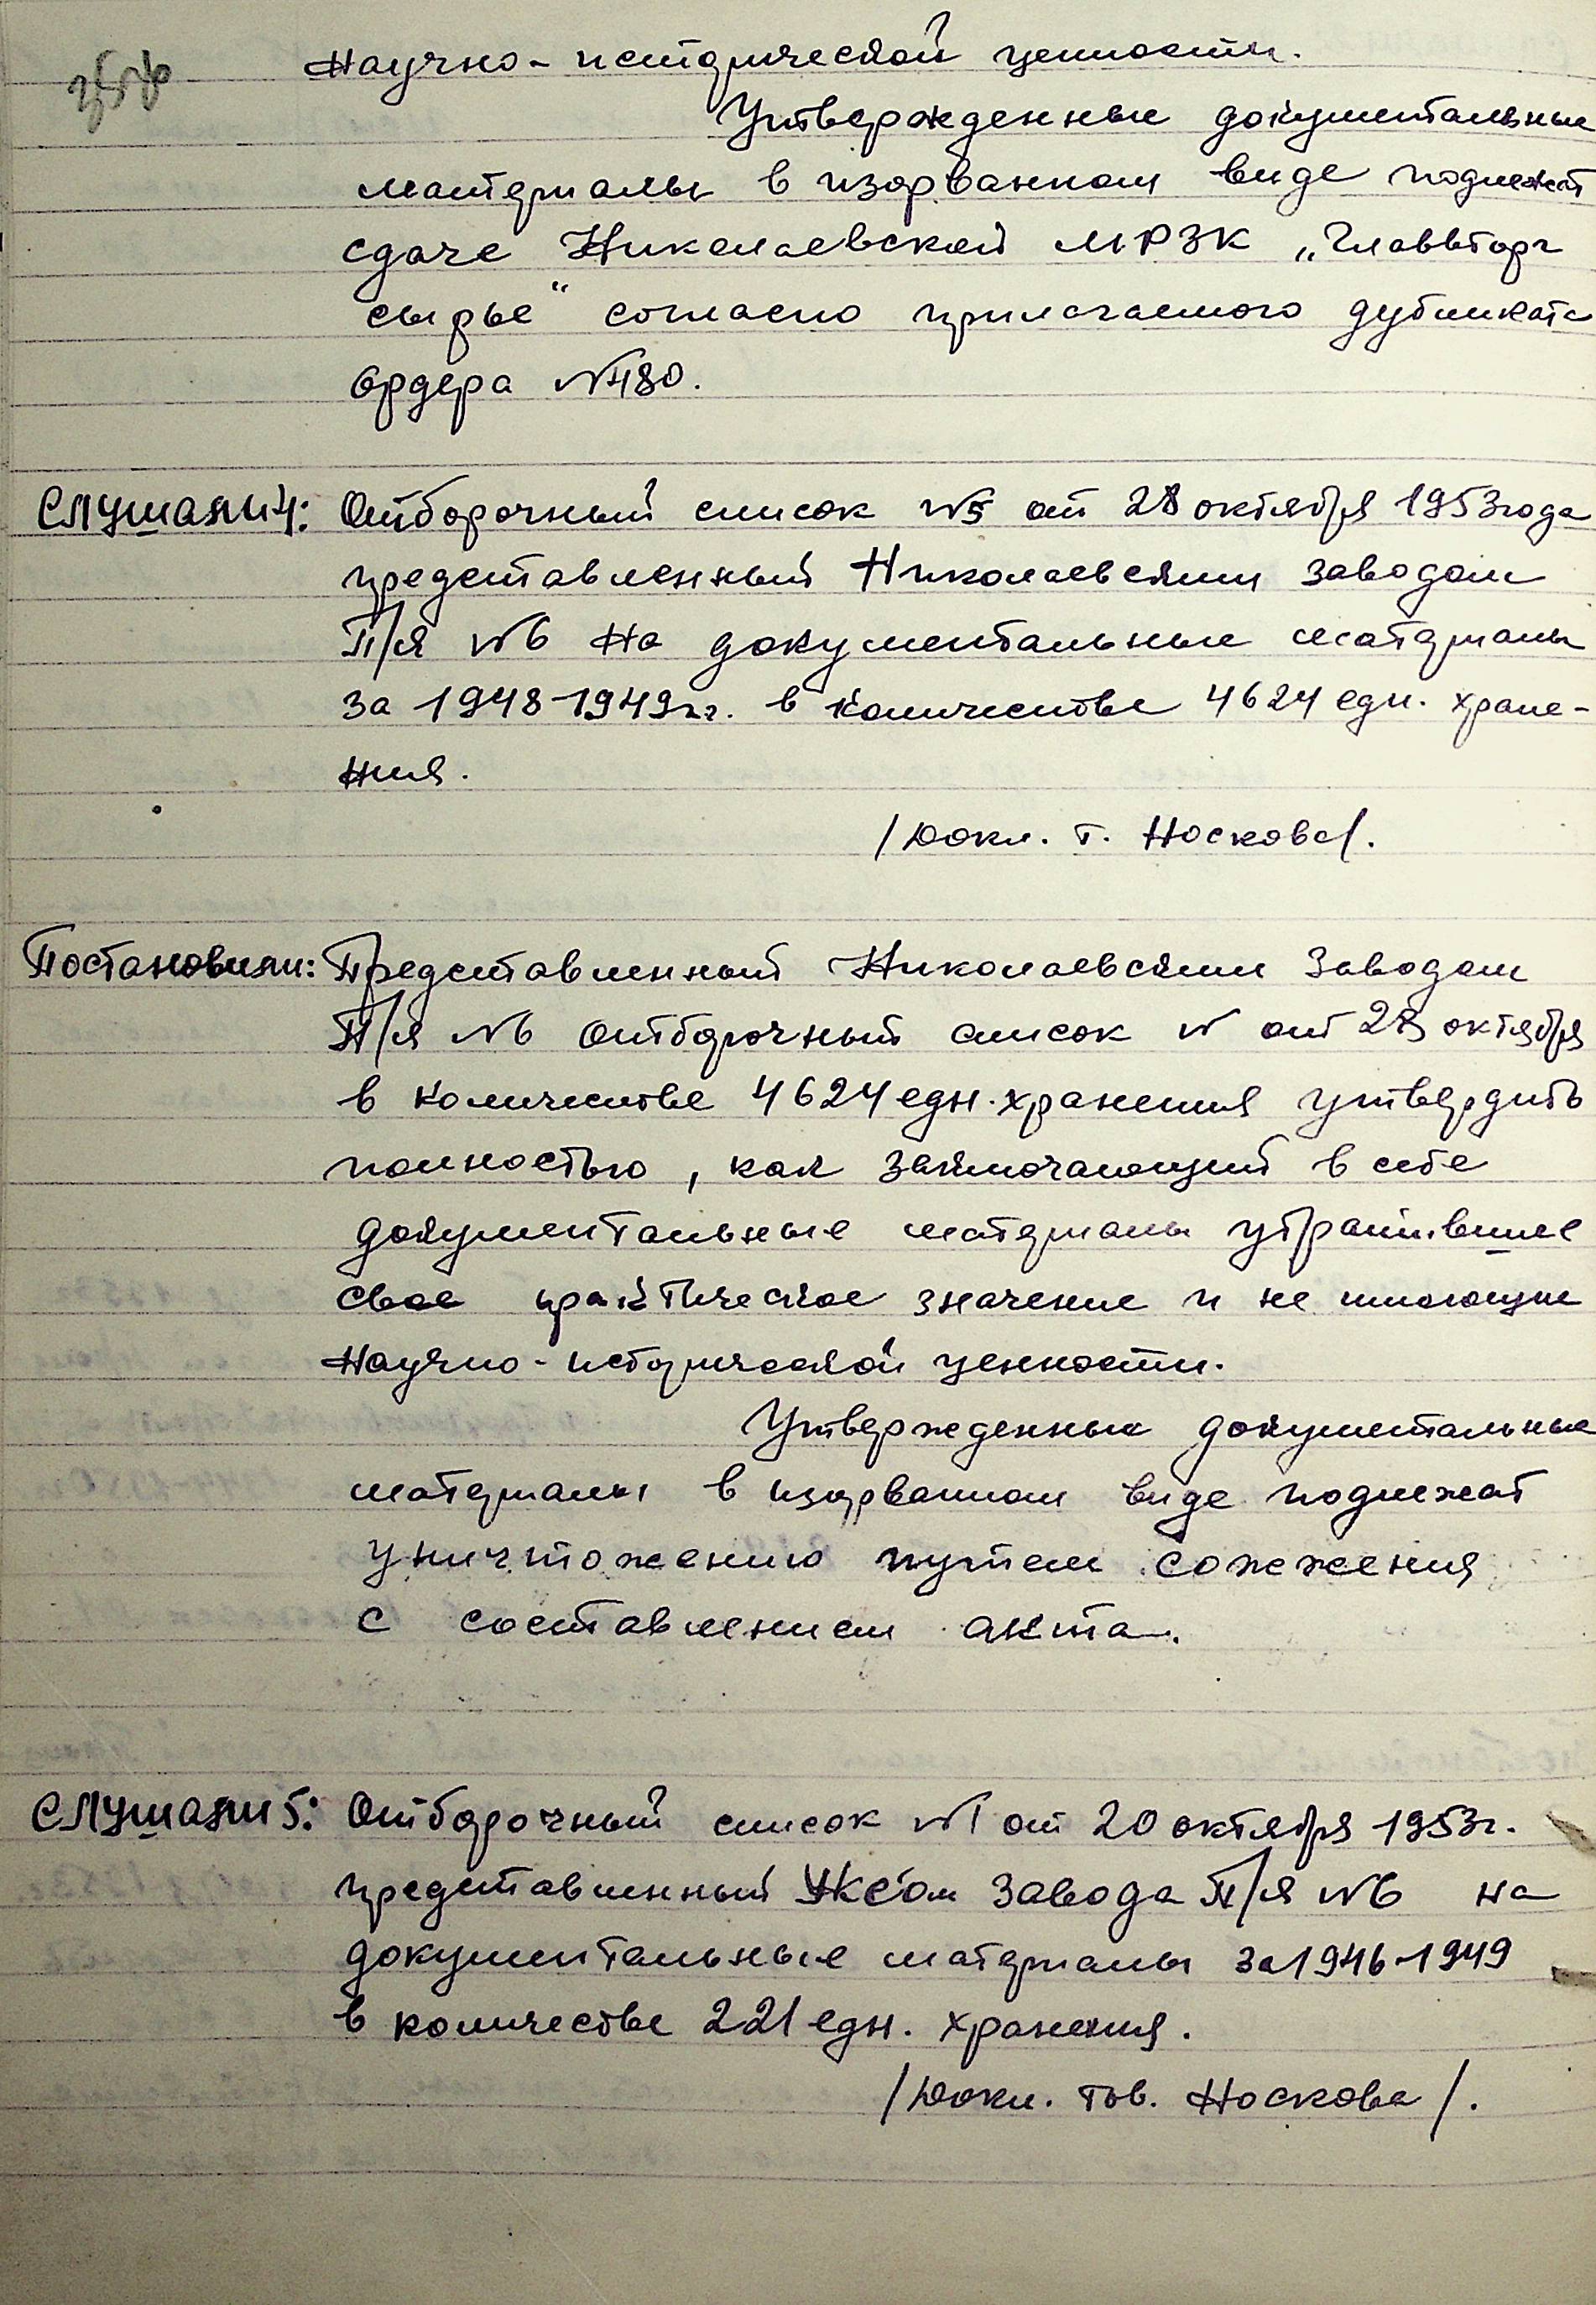 научно-исторической ценности.
Утвержденные документальные
материалы в изорванном виде подлежат
сдаче Николаевской МРЗК „Главвтор
сырье" согласно прилагаемого дубликата
ордера №480.
Слушали 4: Отборочный список №5 от 28 октября 1953 года
представленный Николаевским заводом
П/Я №6 на документальные материалы
за 1948-1949 гг. в количестве 4624 едн. хране-
ния.
/Докл. т. Носкова/.
Постановили: Представленный Николаевским Заводом
П/Я №6 отборочный список № от 28 октября
в количестве 4624 едн. хранения утвердить
полностью, как заключающий в себе
документальные материалы утратившие
свое практическое значение и не имеющие
научно-исторической ценности.
Утвержденные документальные
материалы в изорванном виде подлежат
уничтожению путем сожжения
с составлением акта.
Слушали 5: Отборочный список №1 от 20 октября 1953г.
представленный УКС'ом Завода П/Я №6 на
документальные материалы за 1946-1949
в количестве 221 едн. хранения.
/Докл. тов. Носкова/.